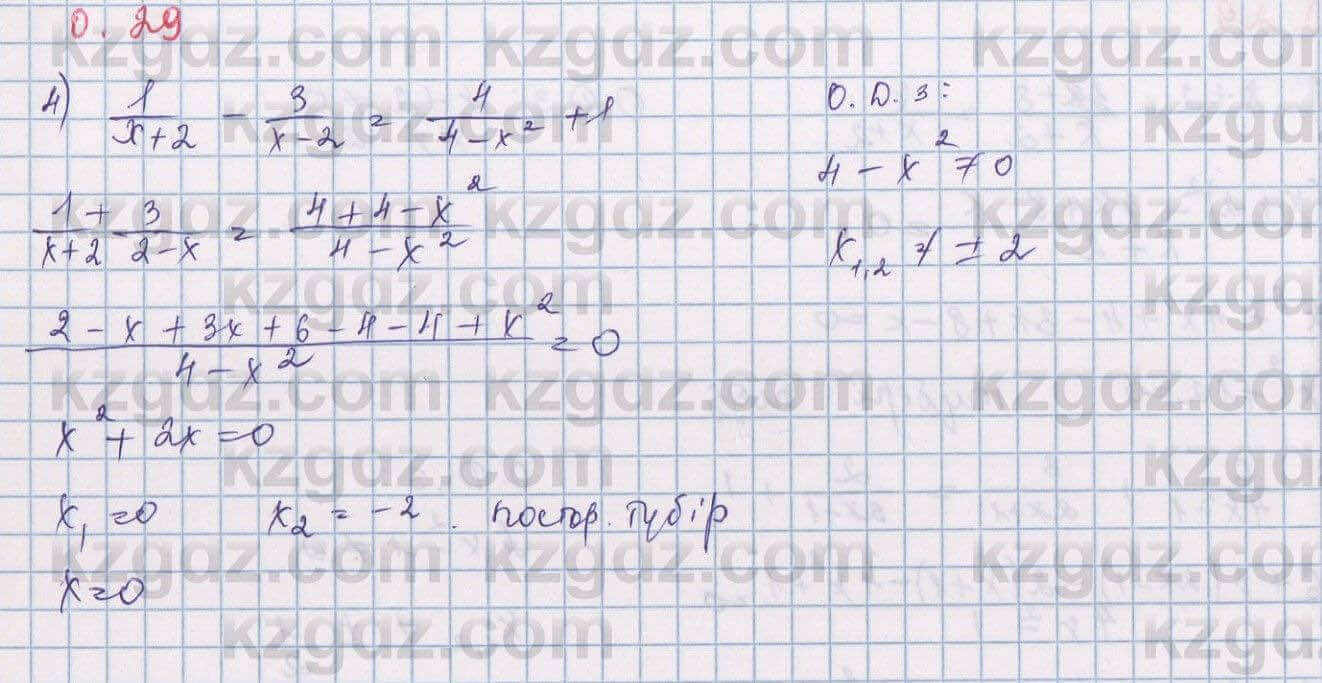 0.29
4) 1/(x+2) - 3/(x-2) = 4/(4-x²) + 1
О.Д.З:
4 - x² ≠ 0
x₁,₂ ≠ ± 2
1/(x+2) + 3/(2-x) = (4+4-x²)/(4-x²)
(2 - x + 3x + 6 - 4 - 4 + x²)/(4-x²) = 0
x² + 2x = 0
x₁ = 0 x₂ = -2 . постор. түбір
x = 0
kzgdz.com